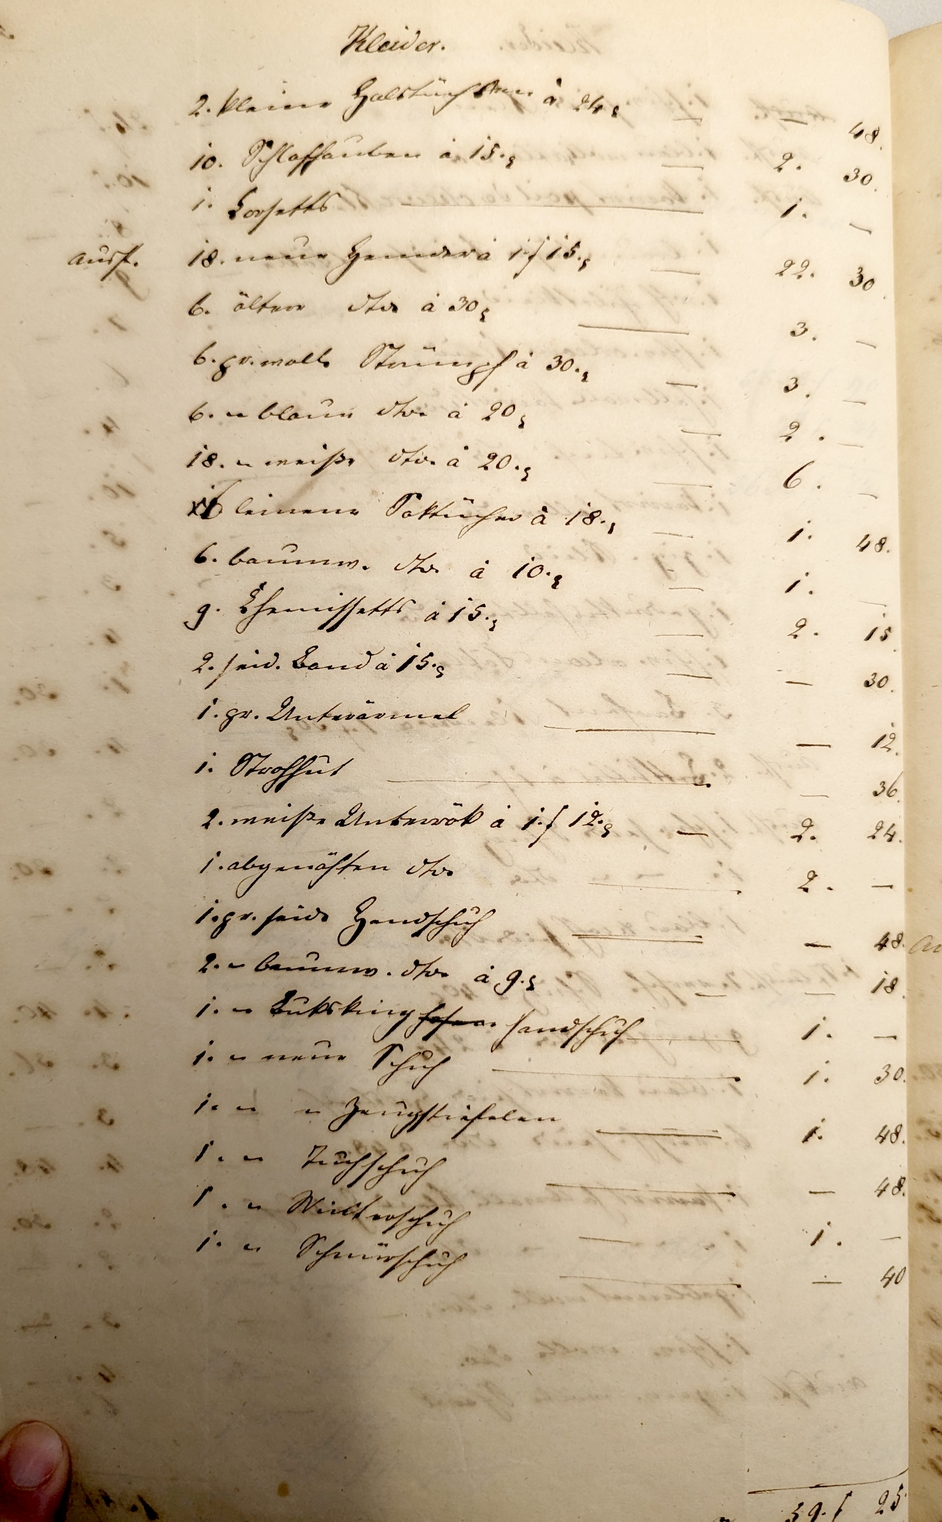 Kleider.
2. kleine Halstüchchen à 24 x — 48.
10. Schlafhauben à 15. x — 2. 30.
1. Corsetts — 1. —
Aust. 18. neue Hemder à 1 f 15. x — 22. 30
6. ältere dto à 30 x — 3. —
6. pr. wolle Strümpf à 30. x — 3. —
6. " blaue dto. à 20 x — 2. —
18. " weiße dto. à 20. x — 6. —
leinene Saktücher à 18. x — 1. 48.
6. baumw. dto. à 10. x — 1. —
9. Chemissetts à 15. x — 2. 15
2. seid. Band à 15. x — — 30.
1. pr. Unterärmel — — 12.
1. Strohhut — — 36.
2. weiße Unterrök à 1. f 12. x — 2. 24.
1. abgenähten dto — 2. —
1. pr. seide Handschuh — — 48.
2. " baumw. dto. à 9. x — — 18.
1. " Bukskinghosen handschuh — 1. —
1. " neue Schuh — 1. 30.
1. " " Zeugstiefelen — 1. 48.
1. " Tuchschuh — — 48.
1. " Winterschuh — 1. —
1. " Schnürschuh — — 40
59. f 25